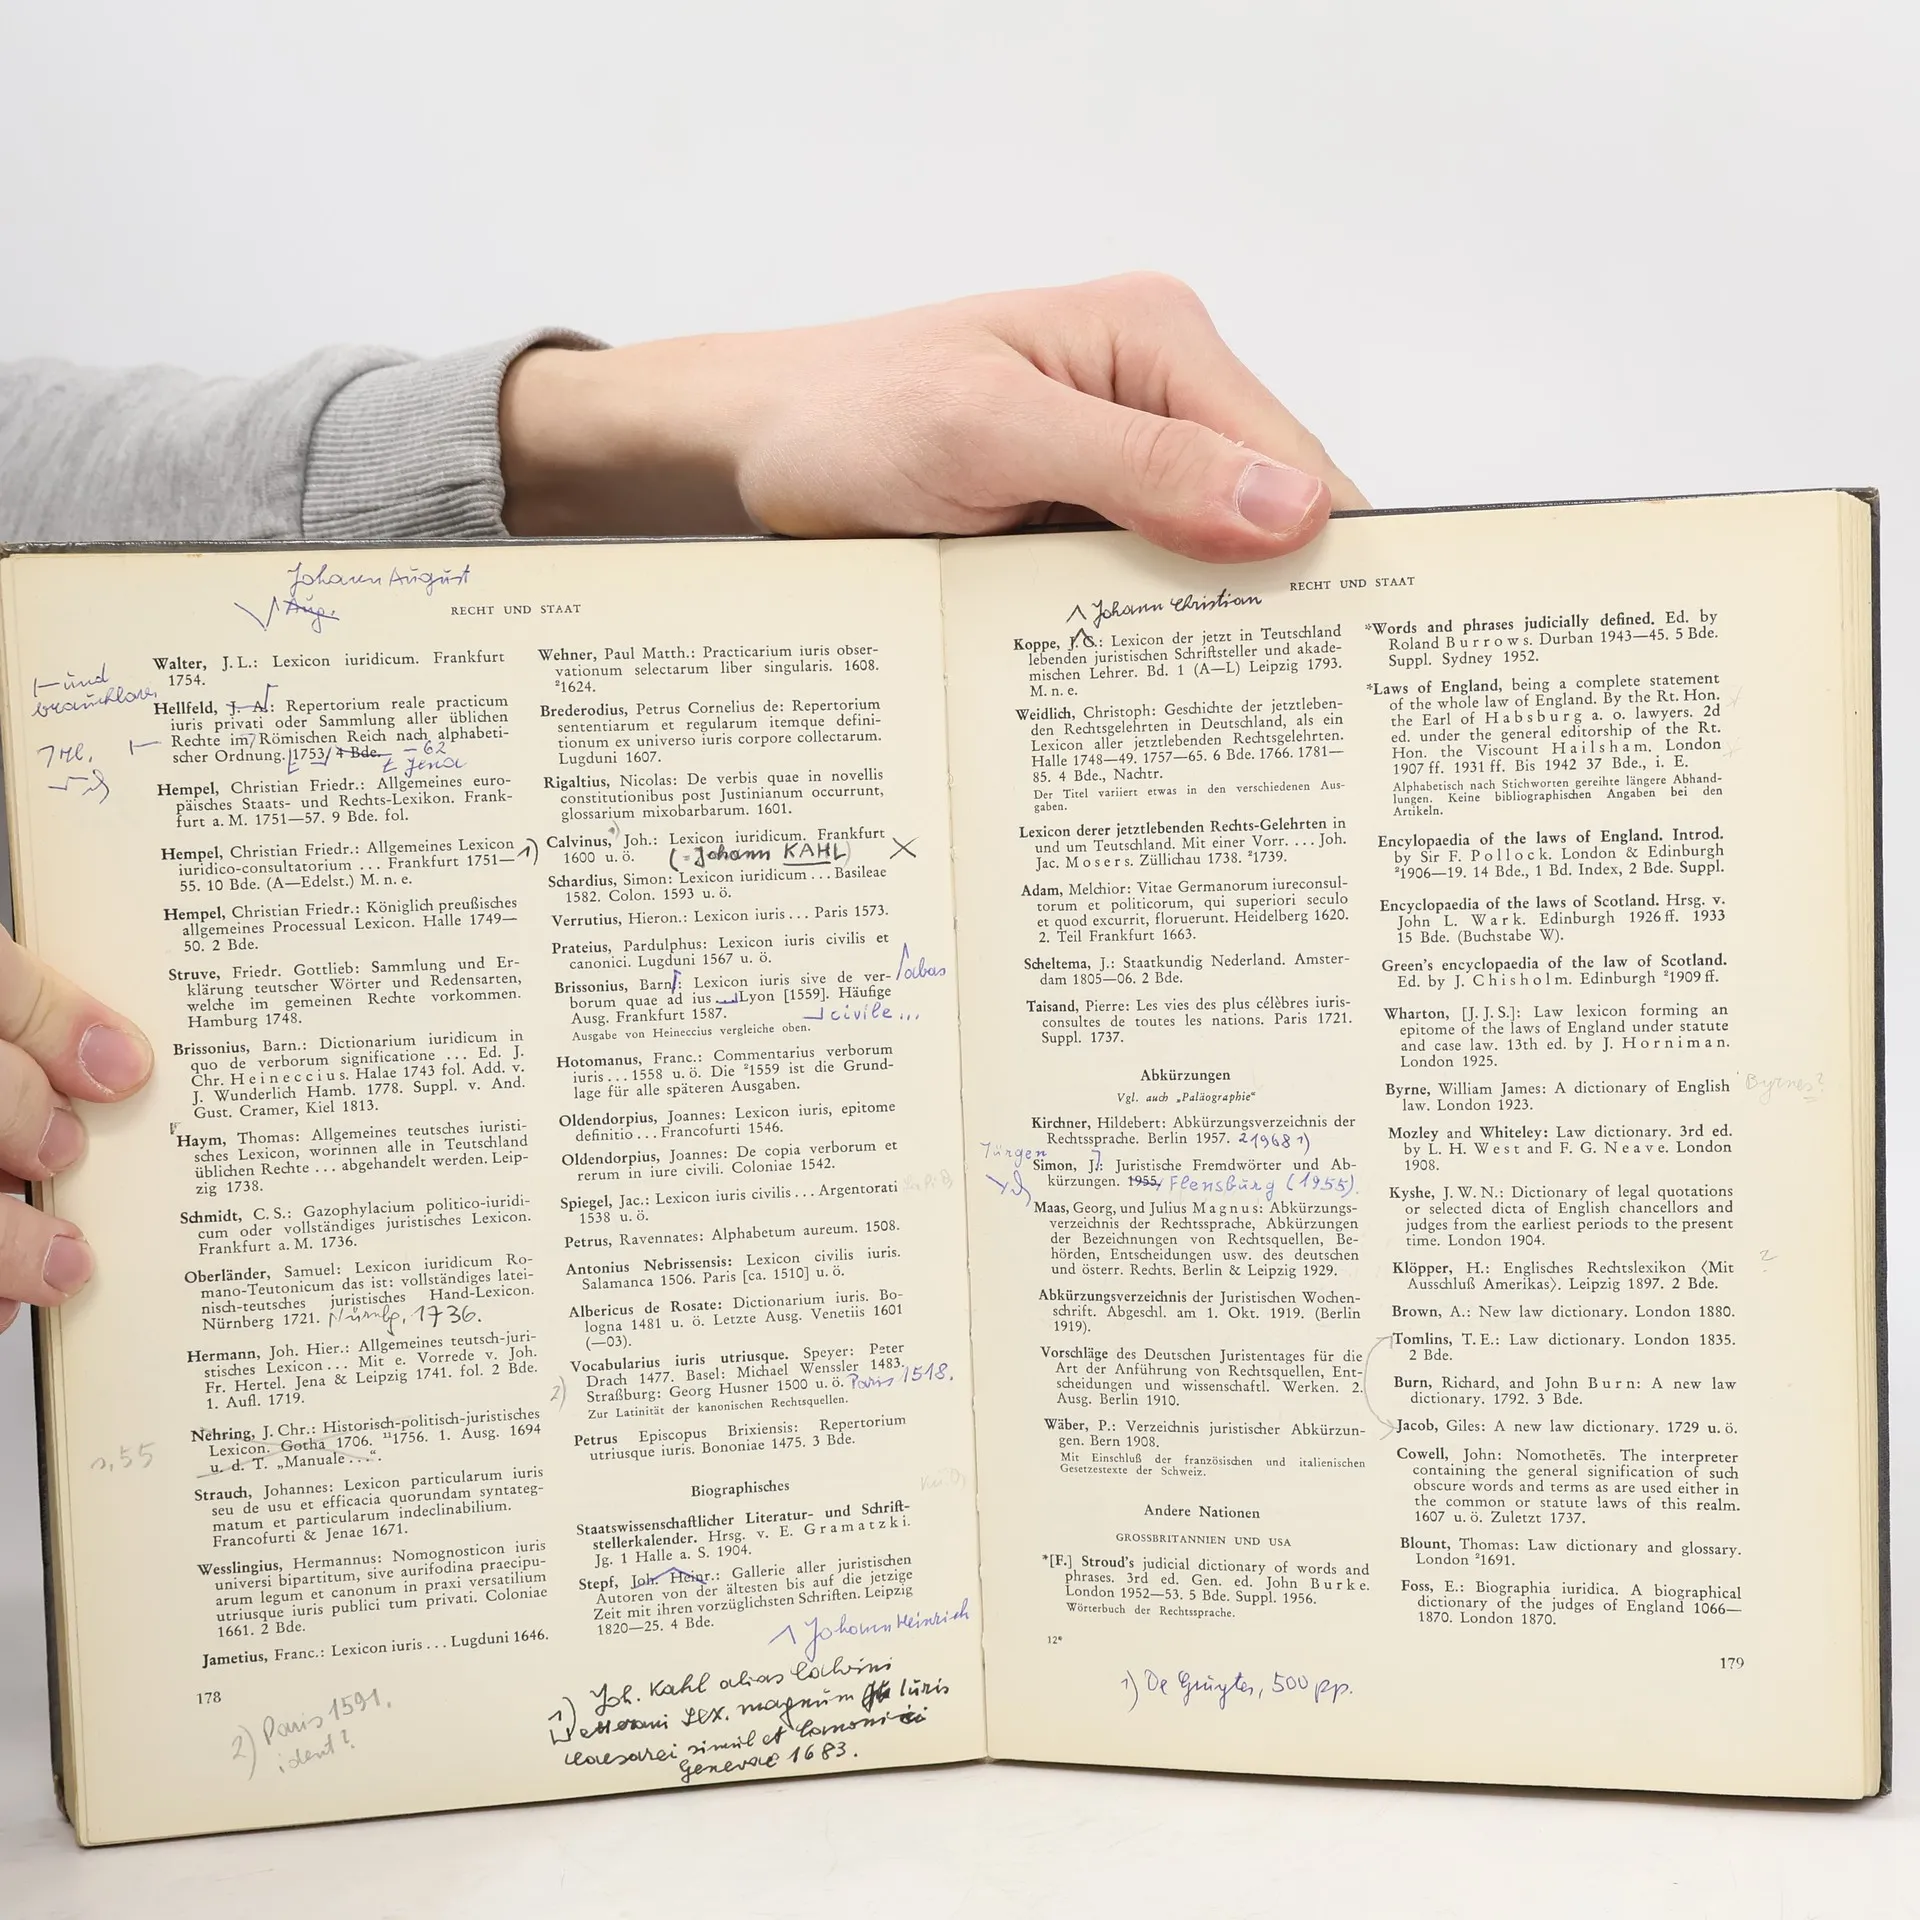 Johann August
Aug.
RECHT UND STAAT
Walter, J. L.: Lexicon iuridicum. Frankfurt
1754.
und
brauchbarer
Hellfeld, J. A.: Repertorium reale practicum
iuris privati oder Sammlung aller üblichen
Rechte im Römischen Reich nach alphabeti-
scher Ordnung. 1753/ 4 Bde. –62
Jena
Hempel, Christian Friedr.: Allgemeines euro-
päisches Staats- und Rechts-Lexikon. Frank-
furt a. M. 1751—57. 9 Bde. fol.
Hempel, Christian Friedr.: Allgemeines Lexicon
iuridico-consultatorium ... Frankfurt 1751—
55. 10 Bde. (A—Edelst.) M. n. e.
Hempel, Christian Friedr.: Königlich preußisches
allgemeines Processual Lexicon. Halle 1749—
50. 2 Bde.
Struve, Friedr. Gottlieb: Sammlung und Er-
klärung teutscher Wörter und Redensarten,
welche im gemeinen Rechte vorkommen.
Hamburg 1748.
Brissonius, Barn.: Dictionarium iuridicum in
quo de verborum significatione ... Ed. J.
Chr. Heineccius. Halae 1743 fol. Add. v.
J. Wunderlich Hamb. 1778. Suppl. v. And.
Gust. Cramer, Kiel 1813.
Haym, Thomas: Allgemeines teutsches iuristi-
sches Lexicon, worinnen alle in Teutschland
üblichen Rechte ... abgehandelt werden. Leip-
zig 1738.
Schmidt, C. S.: Gazophylacium politico-iuridi-
cum oder vollständiges juristisches Lexicon.
Frankfurt a. M. 1736.
Oberländer, Samuel: Lexicon iuridicum Ro-
mano-Teutonicum das ist: vollständiges latei-
nisch-teutsches juristisches Hand-Lexicon.
Nürnberg 1721. Nürnbg. 1736.
Hermann, Joh. Hier.: Allgemeines teutsch-juri-
stisches Lexicon ... Mit e. Vorrede v. Joh.
Fr. Hertel. Jena & Leipzig 1741. fol. 2 Bde.
1. Aufl. 1719.
Nehring, J. Chr.: Historisch-politisch-juristisches
Lexicon. Gotha 1706. ¹¹1756. 1. Ausg. 1694
u. d. T. „Manuale ...“.
s. 55
Strauch, Johannes: Lexicon particularum iuris
seu de usu et efficacia quorundam syntateg-
matum et particularum indeclinabilium.
Francofurti & Jenae 1671.
Wesslingius, Hermannus: Nomognosticon iuris
universi bipartitum, sive aurifodina praecipu-
arum legum et canonum in praxi versatilium
utriusque iuris publici tum privati. Coloniae
1661. 2 Bde.
Jametius, Franc.: Lexicon iuris ... Lugduni 1646.
178
2) Paris 1591.
ident?
Wehner, Paul Matth.: Practicarium iuris obser-
vationum selectarum liber singularis. 1608.
²1624.
Brederodius, Petrus Cornelius de: Repertorium
sententiarum et regularum itemque defini-
tionum ex universo iuris corpore collectarum.
Lugduni 1607.
Rigaltius, Nicolas: De verbis quae in novellis
constitutionibus post Justinianum occurrunt,
glossarium mixobarbarum. 1601.
1) Calvinus, Joh.: Lexicon iuridicum. Frankfurt
1600 u. ö. (= Johann KAHL)
Schardius, Simon: Lexicon iuridicum ... Basileae
1582. Colon. 1593 u. ö.
Verrutius, Hieron.: Lexicon iuris ... Paris 1573.
Prateius, Pardulphus: Lexicon iuris civilis et
canonici. Lugduni 1567 u. ö.
abas
Brissonius, Barn.: Lexicon iuris sive de ver-
borum quae ad ius Lyon [1559]. Häufige
Ausg. Frankfurt 1587. civile ...
Ausgabe von Heineccius vergleiche oben.
Hotomanus, Franc.: Commentarius verborum
iuris ... 1558 u. ö. Die ²1559 ist die Grund-
lage für alle späteren Ausgaben.
Oldendorpius, Joannes: Lexicon iuris, epitome
definitio ... Francofurti 1546.
Oldendorpius, Joannes: De copia verborum et
rerum in iure civili. Coloniae 1542.
Spiegel, Jac.: Lexicon iuris civilis ... Argentorati
1538 u. ö.
Petrus, Ravennates: Alphabetum aureum. 1508.
Antonius Nebrissensis: Lexicon civilis iuris.
Salamanca 1506. Paris [ca. 1510] u. ö.
Albericus de Rosate: Dictionarium iuris. Bo-
logna 1481 u. ö. Letzte Ausg. Venetiis 1601
(—03).
Vocabularius iuris utriusque. Speyer: Peter
Drach 1477. Basel: Michael Wenssler 1483.
2) Straßburg: Georg Husner 1500 u. ö. Paris 1518.
Zur Latinität der kanonischen Rechtsquellen.
Petrus Episcopus Brixiensis: Repertorium
utriusque iuris. Bononiae 1475. 3 Bde.
Biographisches
Staatswissenschaftlicher Literatur- und Schrift-
stellerkalender. Hrsg. v. E. Gramatzki.
Jg. 1 Halle a. S. 1904.
Stepf, Joh. Heinr.: Gallerie aller juristischen
Autoren von der ältesten bis auf die jetzige
Zeit mit ihren vorzüglichsten Schriften. Leipzig
1820—25. 4 Bde.
Johann Heinrich
1) Joh. Kahl alias Calvini
Lex. magnum Iuris
caesarei simul et Canonici
Genevae 1683.
RECHT UND STAAT
Johann Christian
Koppe, J. G.: Lexicon der jetzt in Teutschland
lebenden juristischen Schriftsteller und akade-
mischen Lehrer. Bd. 1 (A—L) Leipzig 1793.
M. n. e.
Weidlich, Christoph: Geschichte der jetztleben-
den Rechtsgelehrten in Deutschland, als ein
Lexicon aller jetztlebenden Rechtsgelehrten.
Halle 1748—49. 1757—65. 6 Bde. 1766. 1781—
85. 4 Bde., Nachtr.
Der Titel variiert etwas in den verschiedenen Aus-
gaben.
Lexicon derer jetztlebenden Rechts-Gelehrten in
und um Teutschland. Mit einer Vorr. ... Joh.
Jac. Mosers. Züllichau 1738. ²1739.
Adam, Melchior: Vitae Germanorum iureconsul-
torum et politicorum, qui superiori seculo
et quod excurrit, floruerunt. Heidelberg 1620.
2. Teil Frankfurt 1663.
Scheltema, J.: Staatkundig Nederland. Amster-
dam 1805—06. 2 Bde.
Taisand, Pierre: Les vies des plus célèbres iuris-
consultes de toutes les nations. Paris 1721.
Suppl. 1737.
Abkürzungen
Vgl. auch „Paläographie“
Kirchner, Hildebert: Abkürzungsverzeichnis der
Rechtssprache. Berlin 1957. ²1968 1)
Jürgen
Simon, J.: Juristische Fremdwörter und Ab-
kürzungen. 1955. Flensburg (1955).
Maas, Georg, und Julius Magnus: Abkürzungs-
verzeichnis der Rechtssprache, Abkürzungen
der Bezeichnungen von Rechtsquellen, Be-
hörden, Entscheidungen usw. des deutschen
und österr. Rechts. Berlin & Leipzig 1929.
Abkürzungsverzeichnis der Juristischen Wochen-
schrift. Abgeschl. am 1. Okt. 1919. (Berlin
1919).
Vorschläge des Deutschen Juristentages für die
Art der Anführung von Rechtsquellen, Ent-
scheidungen und wissenschaftl. Werken. 2.
Ausg. Berlin 1910.
Wäber, P.: Verzeichnis juristischer Abkürzun-
gen. Bern 1908.
Mit Einschluß der französischen und italienischen
Gesetzestexte der Schweiz.
Andere Nationen
GROSSBRITANNIEN UND USA
*[F.] Stroud's judicial dictionary of words and
phrases. 3rd ed. Gen. ed. John Burke.
London 1952—53. 5 Bde. Suppl. 1956.
Wörterbuch der Rechtssprache.
12*
1) De Gruyter, 500 pp.
*Words and phrases judicially defined. Ed. by
Roland Burrows. Durban 1943—45. 5 Bde.
Suppl. Sydney 1952.
*Laws of England, being a complete statement
of the whole law of England. By the Rt. Hon.
the Earl of Habsburg a. o. lawyers. 2d
ed. under the general editorship of the Rt.
Hon. the Viscount Hailsham. London
1907 ff. 1931 ff. Bis 1942 37 Bde., i. E.
Alphabetisch nach Stichworten gereihte längere Abhand-
lungen. Keine bibliographischen Angaben bei den
Artikeln.
Encyclopaedia of the laws of England. Introd.
by Sir F. Pollock. London & Edinburgh
²1906—19. 14 Bde., 1 Bd. Index, 2 Bde. Suppl.
Encyclopaedia of the laws of Scotland. Hrsg. v.
John L. Wark. Edinburgh 1926 ff. 1933
15 Bde. (Buchstabe W).
Green's encyclopaedia of the law of Scotland.
Ed. by J. Chisholm. Edinburgh ²1909 ff.
Wharton, [J. J. S.]: Law lexicon forming an
epitome of the laws of England under statute
and case law. 13th ed. by J. Horniman.
London 1925.
Byrne, William James: A dictionary of English Byrnes?
law. London 1923.
Mozley and Whiteley: Law dictionary. 3rd ed.
by L. H. West and F. G. Neave. London
1908.
Kyshe, J. W. N.: Dictionary of legal quotations
or selected dicta of English chancellors and
judges from the earliest periods to the present
time. London 1904.
?
Klöpper, H.: Englisches Rechtslexikon ⟨Mit
Ausschluß Amerikas⟩. Leipzig 1897. 2 Bde.
Brown, A.: New law dictionary. London 1880.
Tomlins, T. E.: Law dictionary. London 1835.
2 Bde.
Burn, Richard, and John Burn: A new law
dictionary. 1792. 3 Bde.
Jacob, Giles: A new law dictionary. 1729 u. ö.
Cowell, John: Nomothetēs. The interpreter
containing the general signification of such
obscure words and terms as are used either in
the common or statute laws of this realm.
1607 u. ö. Zuletzt 1737.
Blount, Thomas: Law dictionary and glossary.
London ²1691.
Foss, E.: Biographia iuridica. A biographical
dictionary of the judges of England 1066—
1870. London 1870.
179